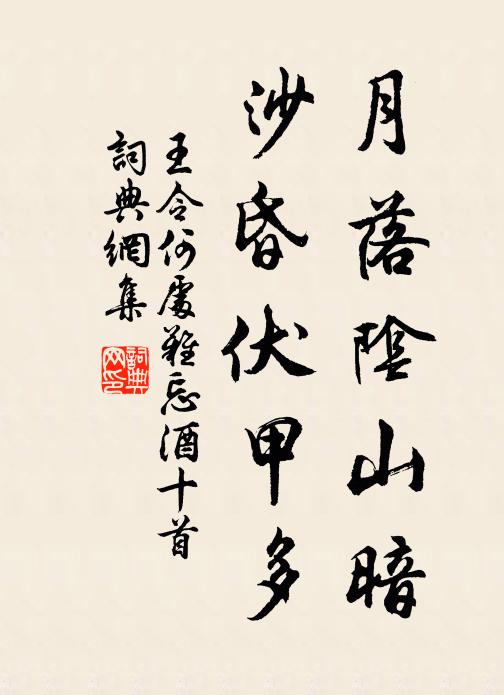 月落陰山暗
沙昏伏甲多
王令何處難忘酒十首
詞典網集
詞典
网印